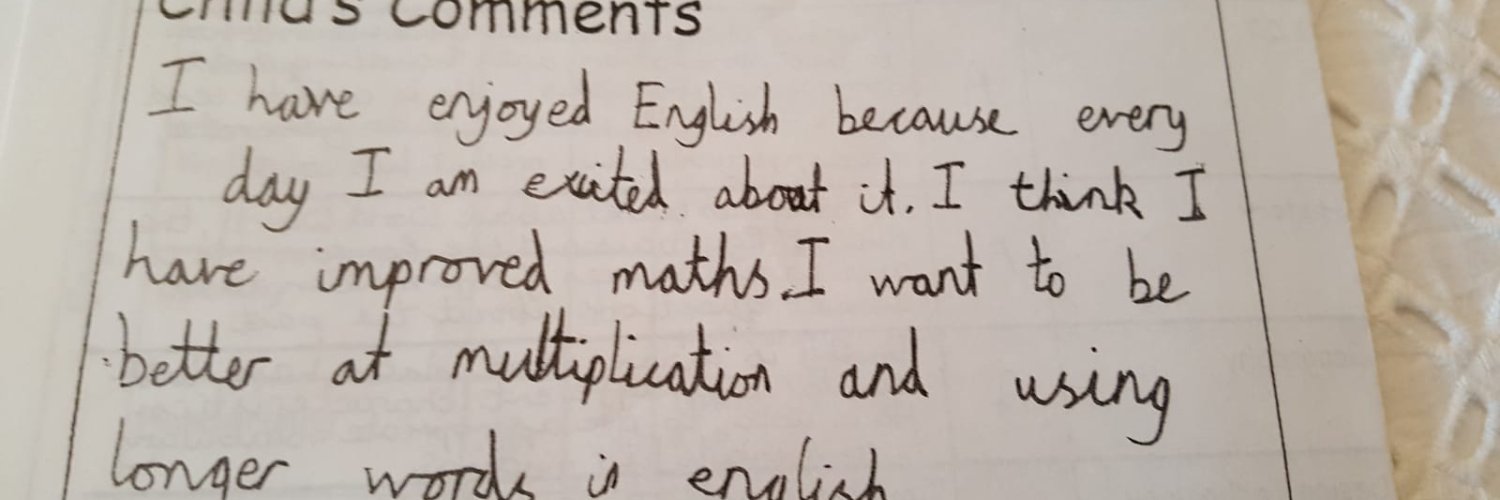 Child's Comments
I have enjoyed English because every
day I am exited about it. I think I
have improved maths. I want to be
better at multiplication and using
longer words in english